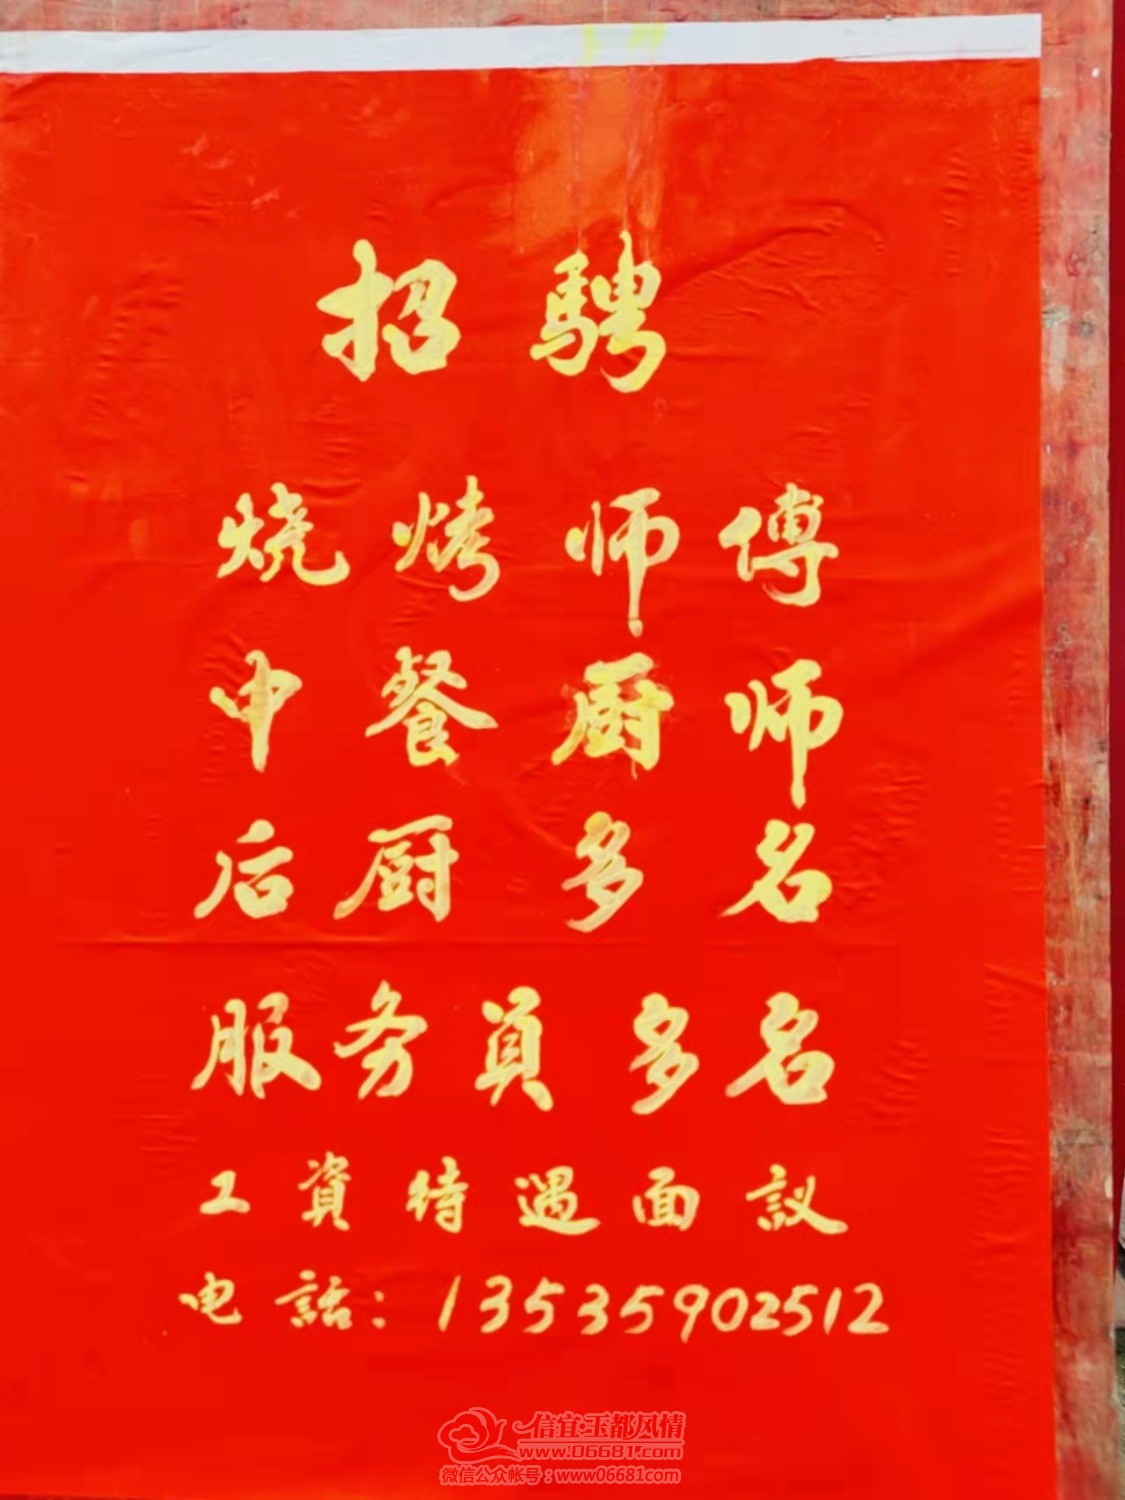 招骋
烧烤师傅
中餐厨师
后厨多名
服务員多名
工資待遇面议
电話：13535902512
信宜·玉都风情
www.06681.com
微信公众帐号：www06681com